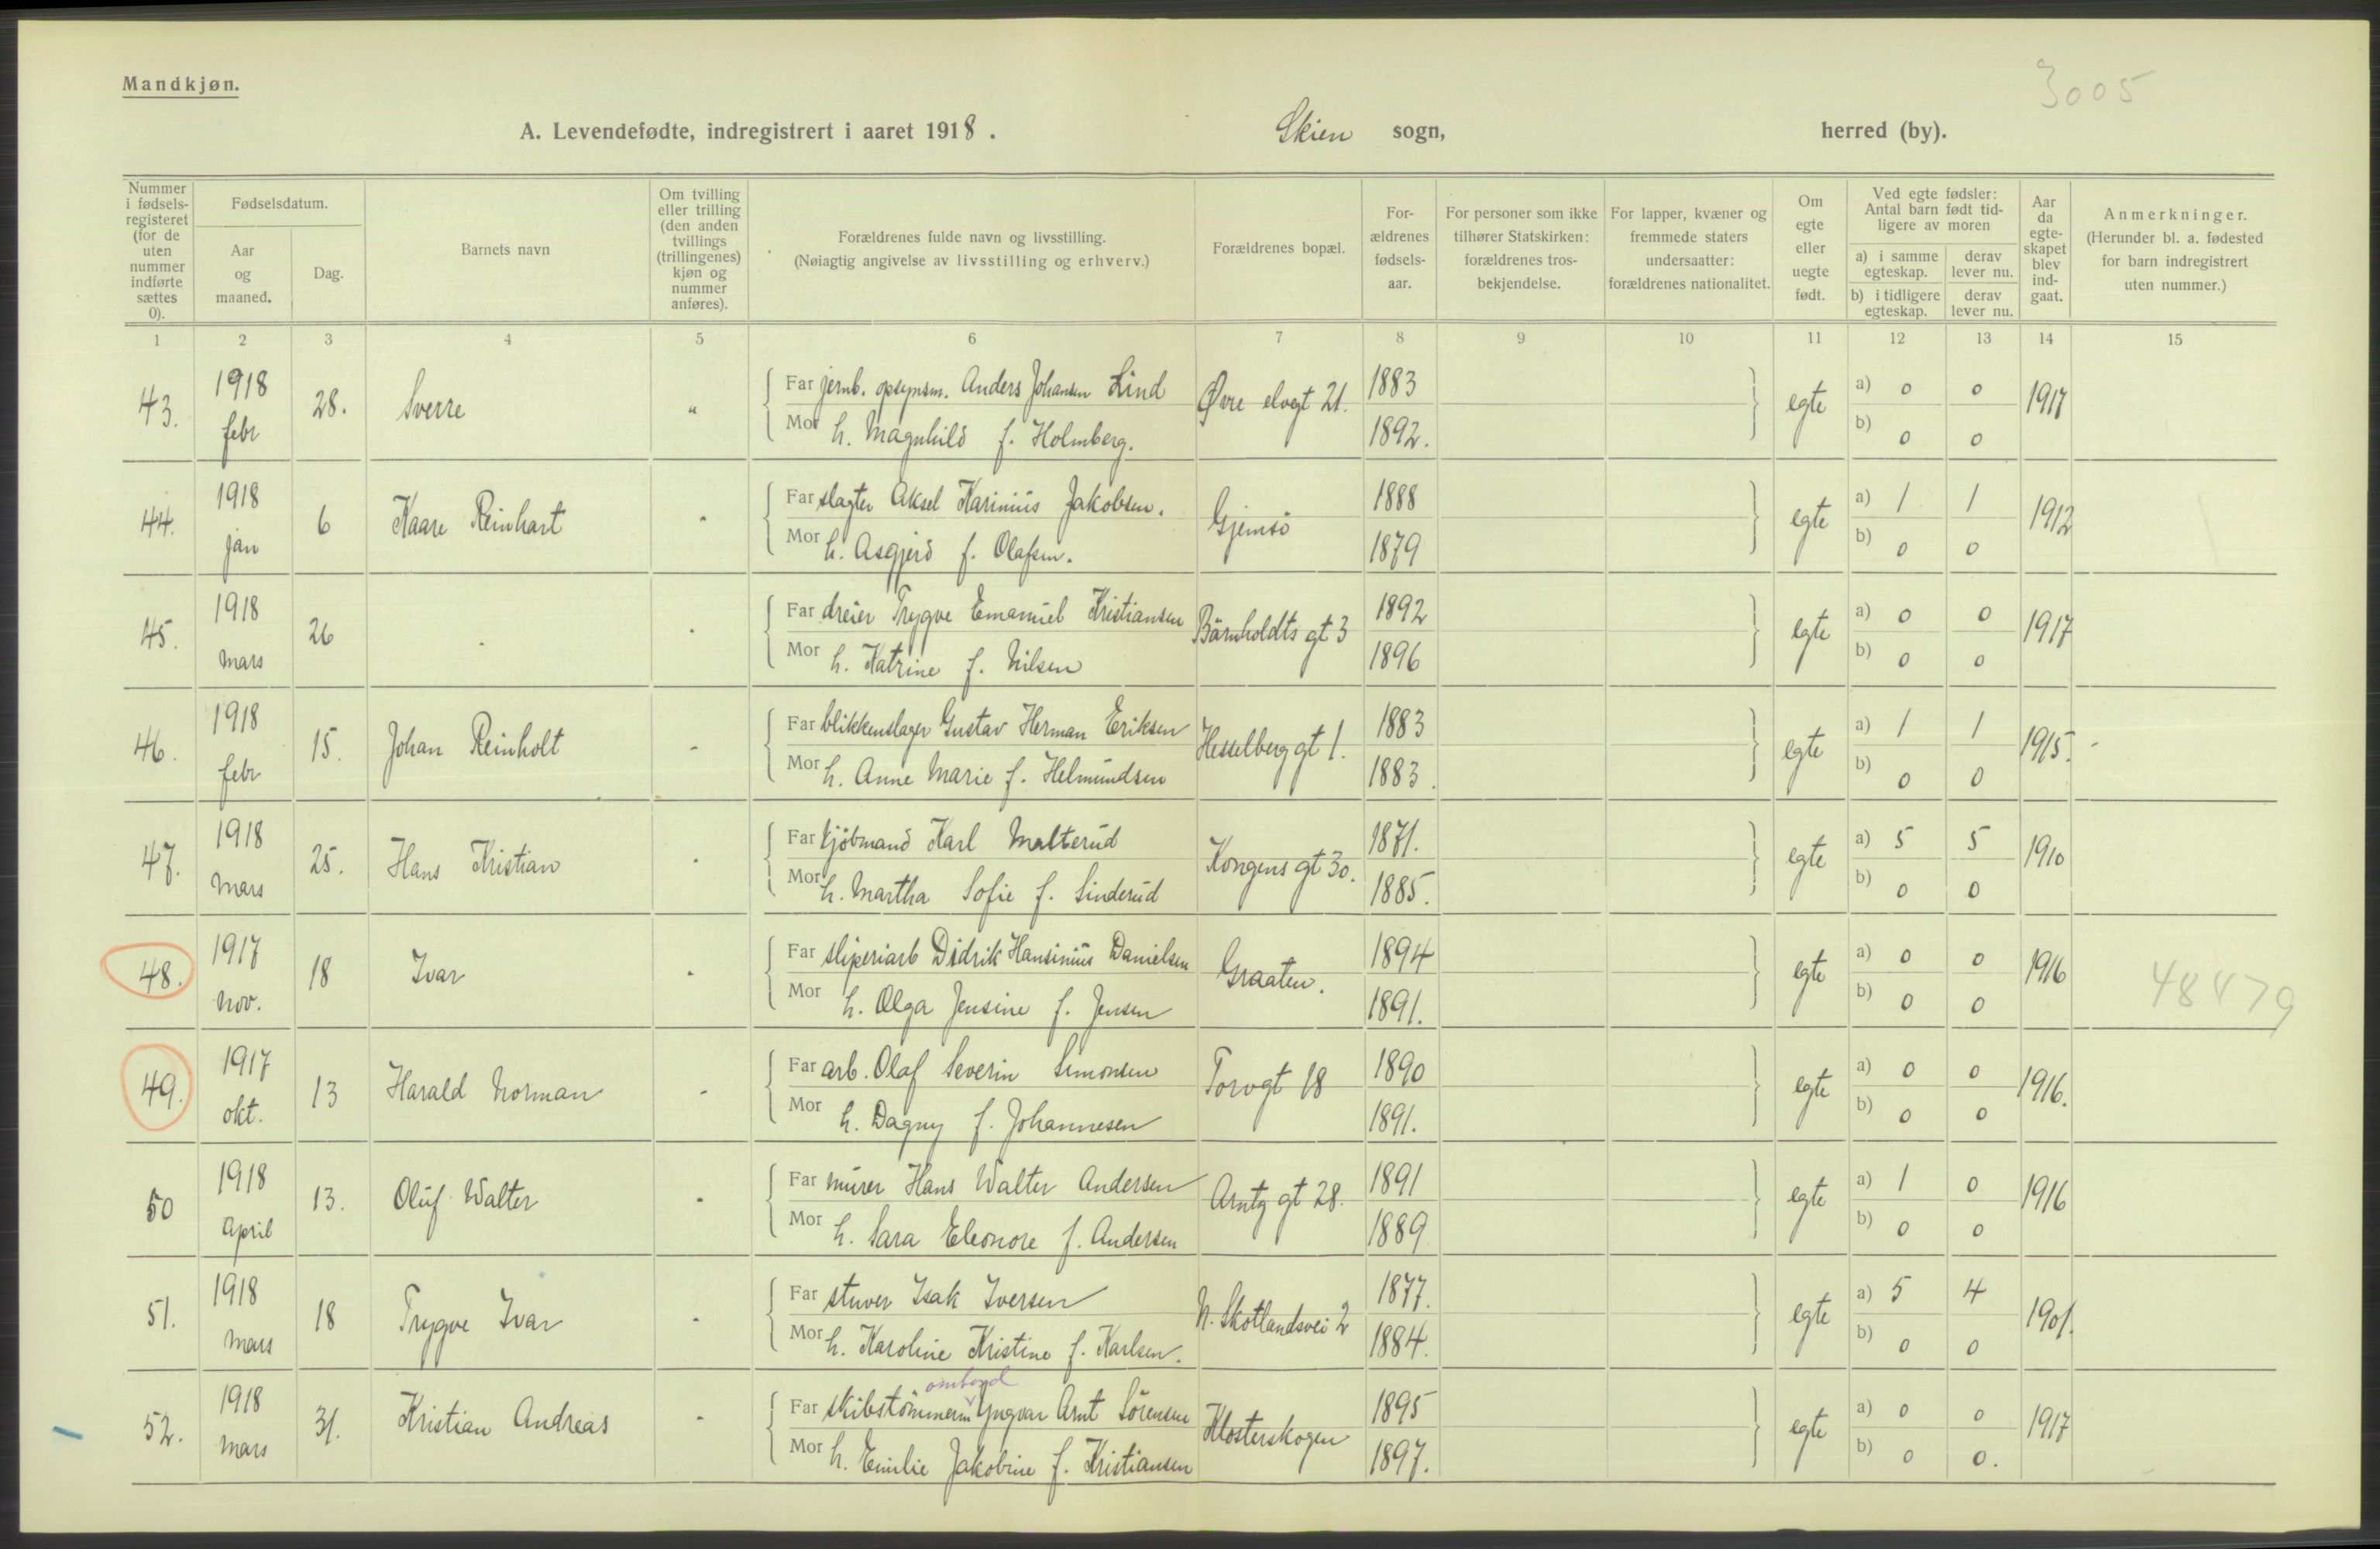 Mandkjøn.
3005
A. Levendefødte, indregistrert i aaret 1918. Skien sogn, herred (by).
Nummer i fødsels-registeret (for de uten nummer indførte sættes 0).
Fødselsdatum.
Aar og maaned.
Dag.
Barnets navn
Om tvilling eller trilling (den anden tvillings (trillingenes) kjøn og nummer anføres).
Forældrenes fulde navn og livsstilling.
(Nøiagtig angivelse av livsstilling og erhverv.)
Forældrenes bopæl.
For-ældrenes fødsels-aar.
For personer som ikke tilhører Statskirken: forældrenes tros-bekjendelse.
For lapper, kvæner og fremmede staters undersaatter: forældrenes nationalitet.
Om egte eller uegte født.
Ved egte fødsler: Antal barn født tid-ligere av moren
a) i samme egteskap. derav lever nu.
b) i tidligere egteskap. derav lever nu.
Aar da egte-skapet blev ind-gaat.
Anmerkninger.
(Herunder bl. a. fødested for barn indregistrert uten nummer.)
1 2 3 4 5 6 7 8 9 10 11 12 13 14 15
43. 1918 febr 28. Sverre " Far jernb. opsynsm. Anders Johansen Lind Øvre elvegt 21. 1883 egte a) 0 0 1917
Mor h. Magnhild f. Holmberg. 1892. b) 0 0
44. 1918 jan 6 Kaare Reinhart Far slagter Aksel Karinius Jakobsen. Gjemsö 1888 egte a) 1 1 1912
Mor h. Asgjerd f. Olafsen. 1879 b) 0 0
45. 1918 Mars 26 Far dreier Trygve Emanuel Kristiansen Bärnholdts gt 3 1892 egte a) 0 0 1917
Mor h. Katrine f. Nilsen 1896 b) 0 0
46. 1918 febr 15. Johan Reinholt - Far blikkenslager Gustav Herman Eriksen Hesselberg gt 1. 1883 egte a) 1 1 1915. -
Mor h. Anne Marie f. Helmundsen 1883. b) 0 0
47. 1918 Mars 25. Hans Kristian Far kjöbmand Karl Malterud Kongens gt 30. 1871. egte a) 5 5 1910
Mor h. Martha Sofie f. Sinderud 1885. b) 0 0
48. 1917 Nov. 18 Ivar Far sliperiarb Didrik Hansinius Danielsen Graaten. 1894 egte a) 0 0 1916
Mor h. Olga Jensine f. Jensen 1891. b) 0 0
49. 1917 okt. 13 Harald Norman - Far arb. Olaf Severin Simonsen Torvgt 18 1890 egte a) 0 0 1916.
Mor h. Dagny f. Johannesen 1891. b) 0 0
50 1918 April 13. Oluf Walter Far murer Hans Walter Andersen Arntz gt 28. 1891 egte a) 1 0 1916
Mor h. Sara Eleonore f. Andersen 1889 b) 0 0
51. 1918 Mars 18 Trygve Ivar - Far stuver Isak Iversen N. Skotlandsvei 2 1877. egte a) 5 4 1901.
Mor h. Karoline Kristine f. Karlsen. 1884. b) 0 0
ombord
52. 1918 Mars 31. Kristian Andreas - Far skibstömmerm Yngvar Arnt Sörensen Klosterskogen 1895 egte a) 0 0 1917
Mor h. Emilie Jakobine f. Kristiansen 1897. b) 0 0.